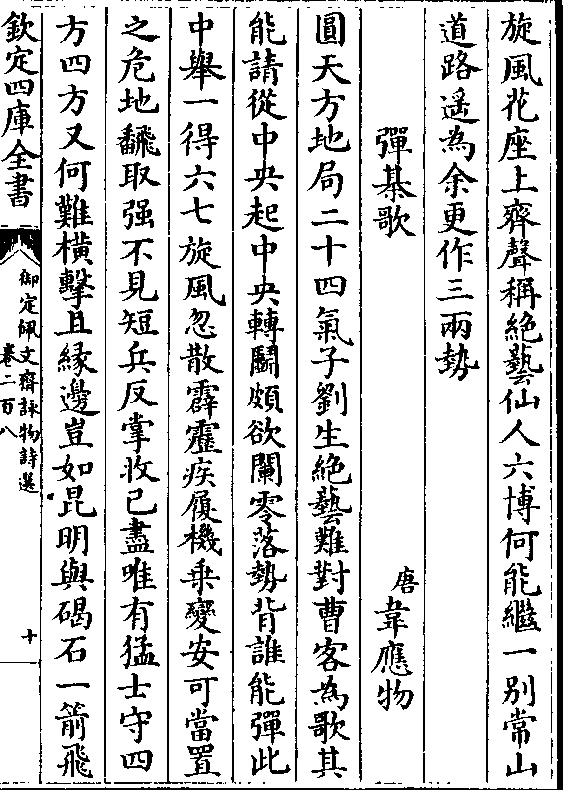 旋風花座上齊聲稱絶藝仙人六博何能繼一别常山
道路遥為余更作三兩勢
彈棊歌
唐韋應物
圓天方地局二十四氣子劉生絶藝難對曹客為歌其
能請從中央起中央轉鬭頗欲闌零落勢背誰能彈此
中舉一得六七旋風忽散霹靂疾履機乗變安可當置
之危地翻取强不見短兵反掌收已盡唯有猛士守四
方四方又何難横擊且緣邊豈如昆明與碣石一箭飛
欽定四庫全書
御定佩文齋詠物詩選
卷二百八
十